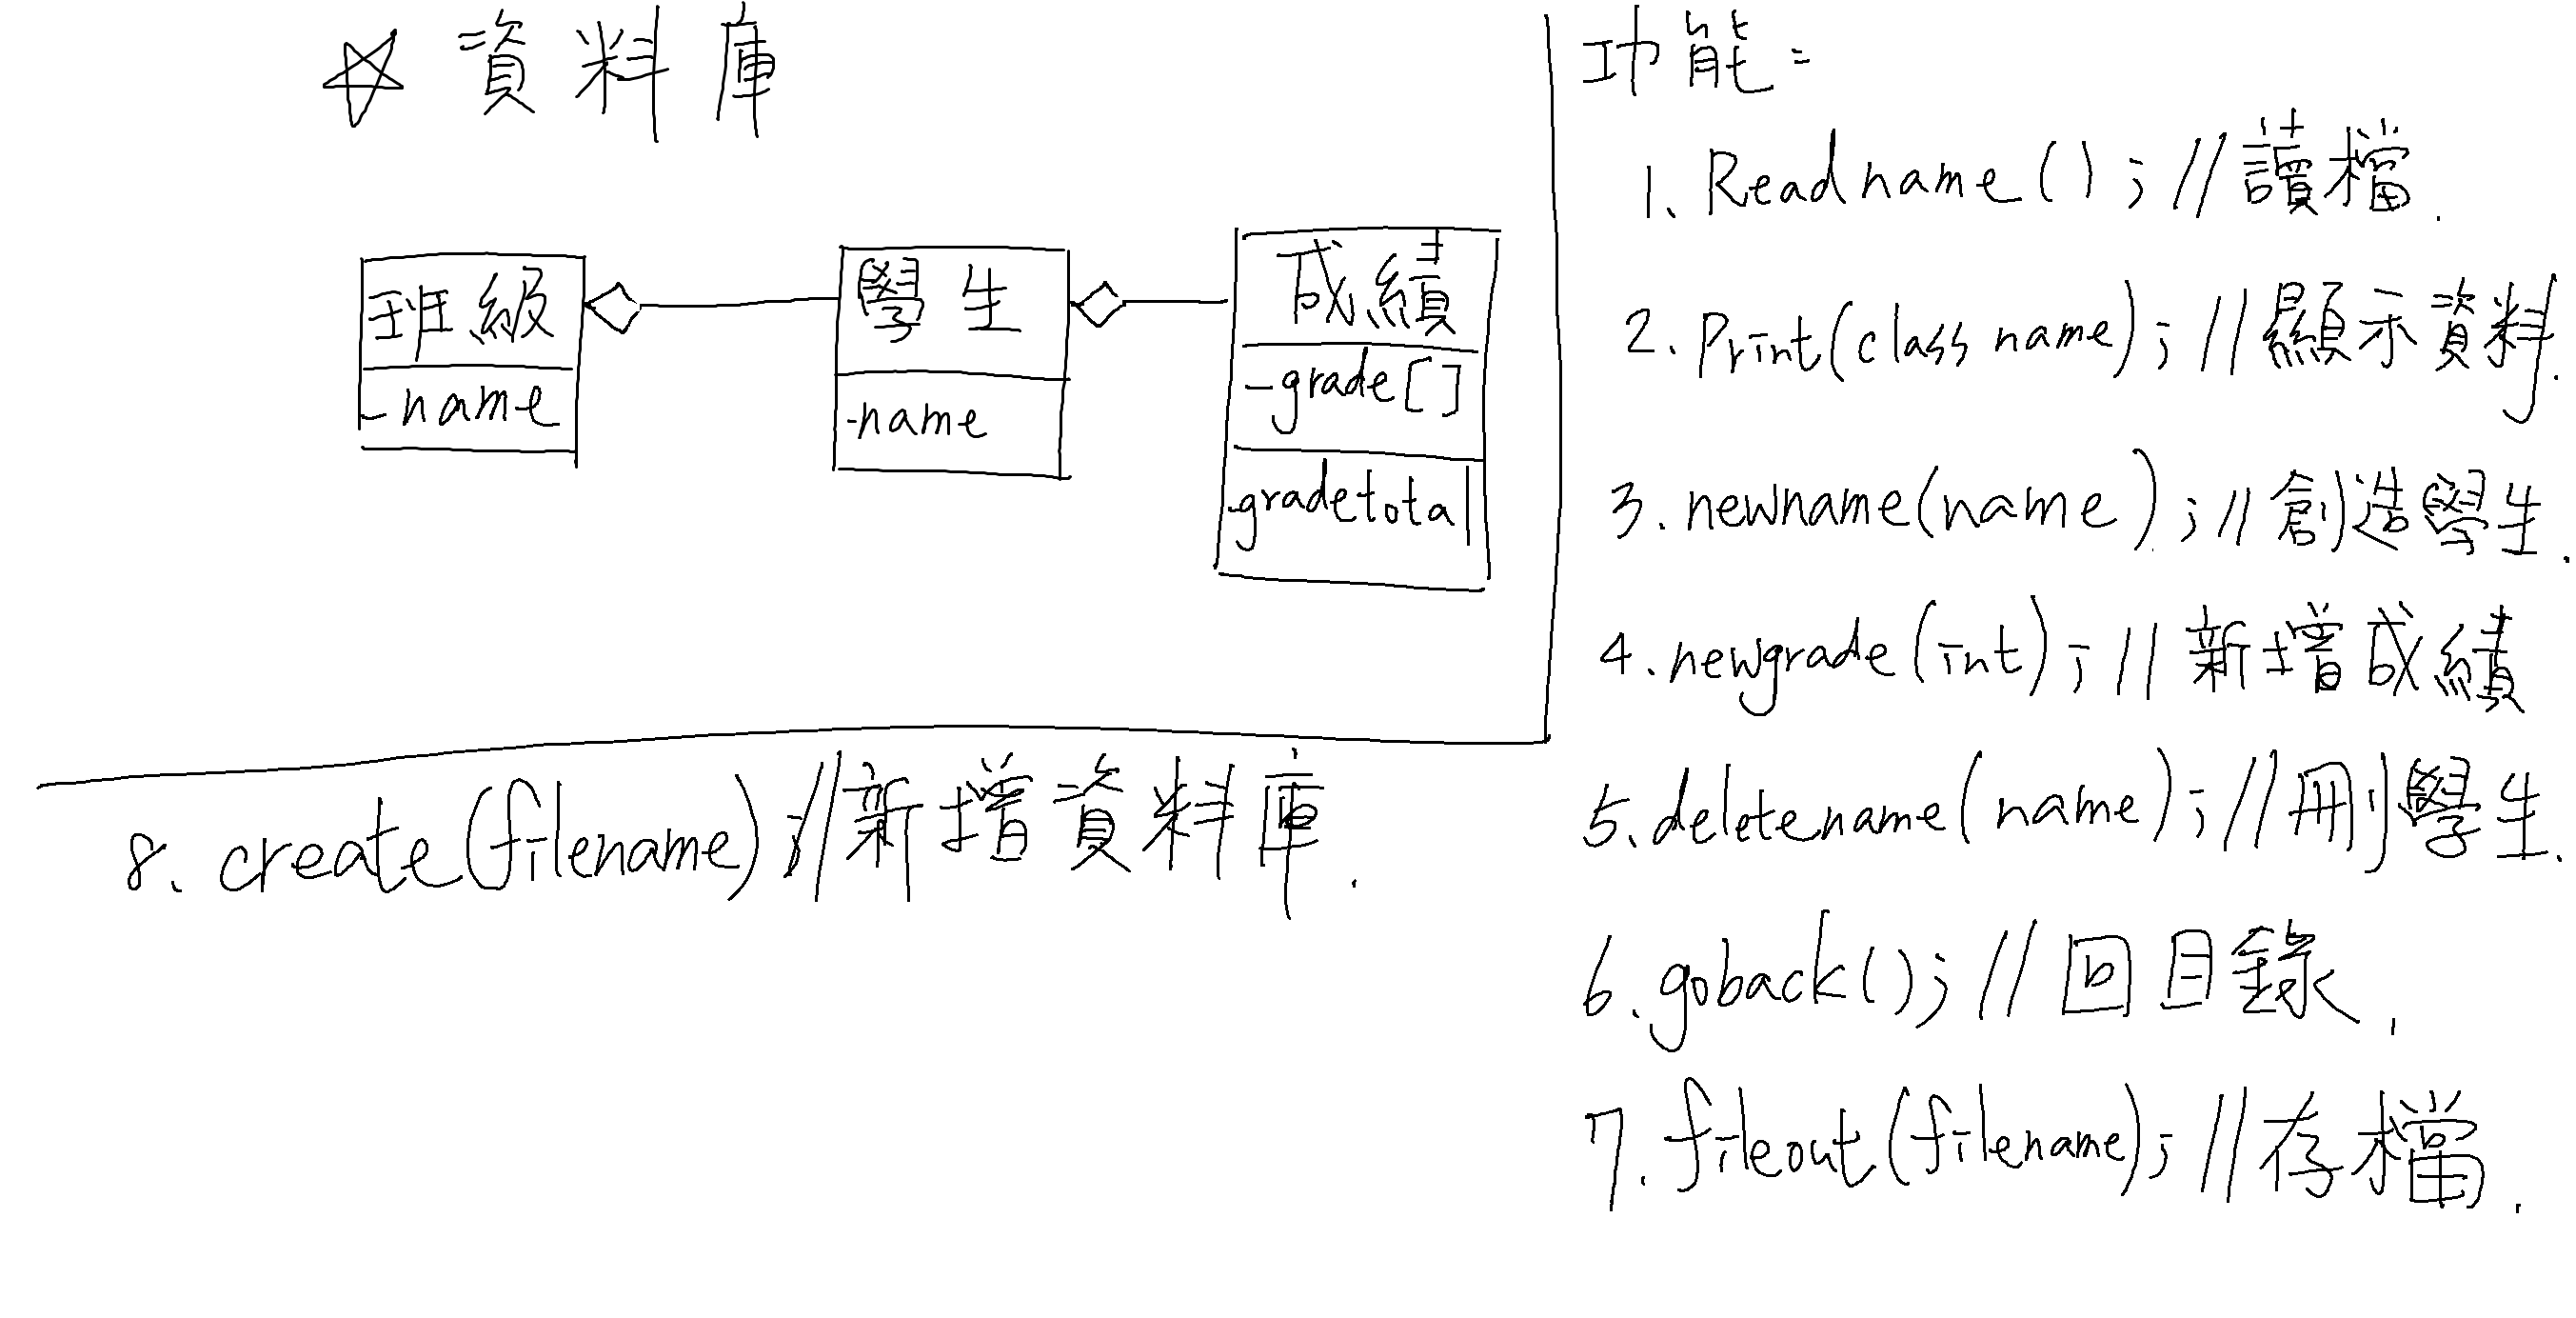 ☆ 資料庫
班級
-name
學生
-name
成績
-grade[]
-gradetotal
功能:
1. Readname(); //讀檔.
2. Print(class name); //顯示資料.
3. newname(name); //創造學生.
4. newgrade(int); //新增成績
5. deletename(name); //刪學生.
6. goback(); //回目錄.
7. fileout(filename); //存檔.
8. create(filename); //新增資料庫.